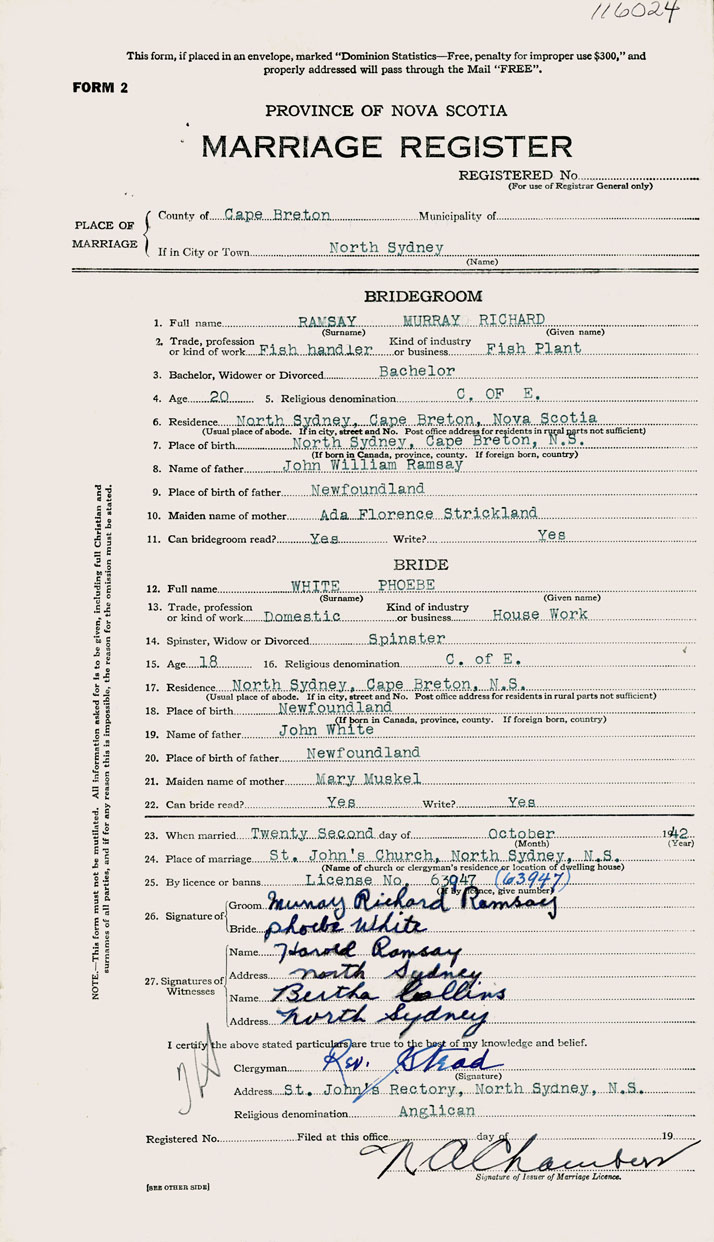 116024
This form, if placed in an envelope, marked "Dominion Statistics—Free, penalty for improper use $300," and
properly addressed will pass through the Mail "FREE".
FORM 2
PROVINCE OF NOVA SCOTIA
MARRIAGE REGISTER
REGISTERED No.
(For use of Registrar General only)
PLACE OF MARRIAGE
County of Cape Breton Municipality of
If in City or Town North Sydney
(Name)
BRIDEGROOM
1. Full name RAMSAY MURRAY RICHARD
(Surname) (Given name)
2. Trade, profession or kind of work Fish handler Kind of industry or business Fish Plant
3. Bachelor, Widower or Divorced Bachelor
4. Age 20 5. Religious denomination C. OF E.
6. Residence North Sydney, Cape Breton, Nova Scotia
(Usual place of abode. If in city, street and No. Post office address for residents in rural parts not sufficient)
7. Place of birth North Sydney, Cape Breton, N.S.
(If born in Canada, province, county. If foreign born, country)
8. Name of father John William Ramsay
9. Place of birth of father Newfoundland
10. Maiden name of mother Ada Florence Strickland
11. Can bridegroom read? Yes Write? Yes
BRIDE
12. Full name WHITE PHOEBE
(Surname) (Given name)
13. Trade, profession or kind of work Domestic Kind of industry or business House Work
14. Spinster, Widow or Divorced Spinster
15. Age 18 16. Religious denomination C. of E.
17. Residence North Sydney, Cape Breton, N.S.
(Usual place of abode. If in city, street and No. Post office address for residents in rural parts not sufficient)
18. Place of birth Newfoundland
(If born in Canada, province, county. If foreign born, country)
19. Name of father John White
20. Place of birth of father Newfoundland
21. Maiden name of mother Mary Muskel
22. Can bride read? Yes Write? Yes
23. When married Twenty Second day of October 1942
(Month) (Year)
24. Place of marriage St. John's Church, North Sydney, N.S.
(Name of church or clergyman's residence or location of dwelling house)
25. By licence or banns License No. 63947 (63947)
(If by licence, give number)
26. Signature of
Groom Murray Richard Ramsay
Bride Phoebe White
27. Signatures of Witnesses
Name Harold Ramsay
Address North Sydney
Name Bertha Collins
Address North Sydney
I certify the above stated particulars are true to the best of my knowledge and belief.
Clergyman Rev. Stead
(Signature)
Address St. John's Rectory, North Sydney, N.S.
Religious denomination Anglican
Registered No. Filed at this office day of 19
N A Chambers
Signature of Issuer of Marriage Licence.
[SEE OTHER SIDE]
NOTE.—This form must not be mutilated. All information asked for is to be given, including full Christian and
surnames of all parties, and if for any reason this is impossible, the reason for the omission must be stated.